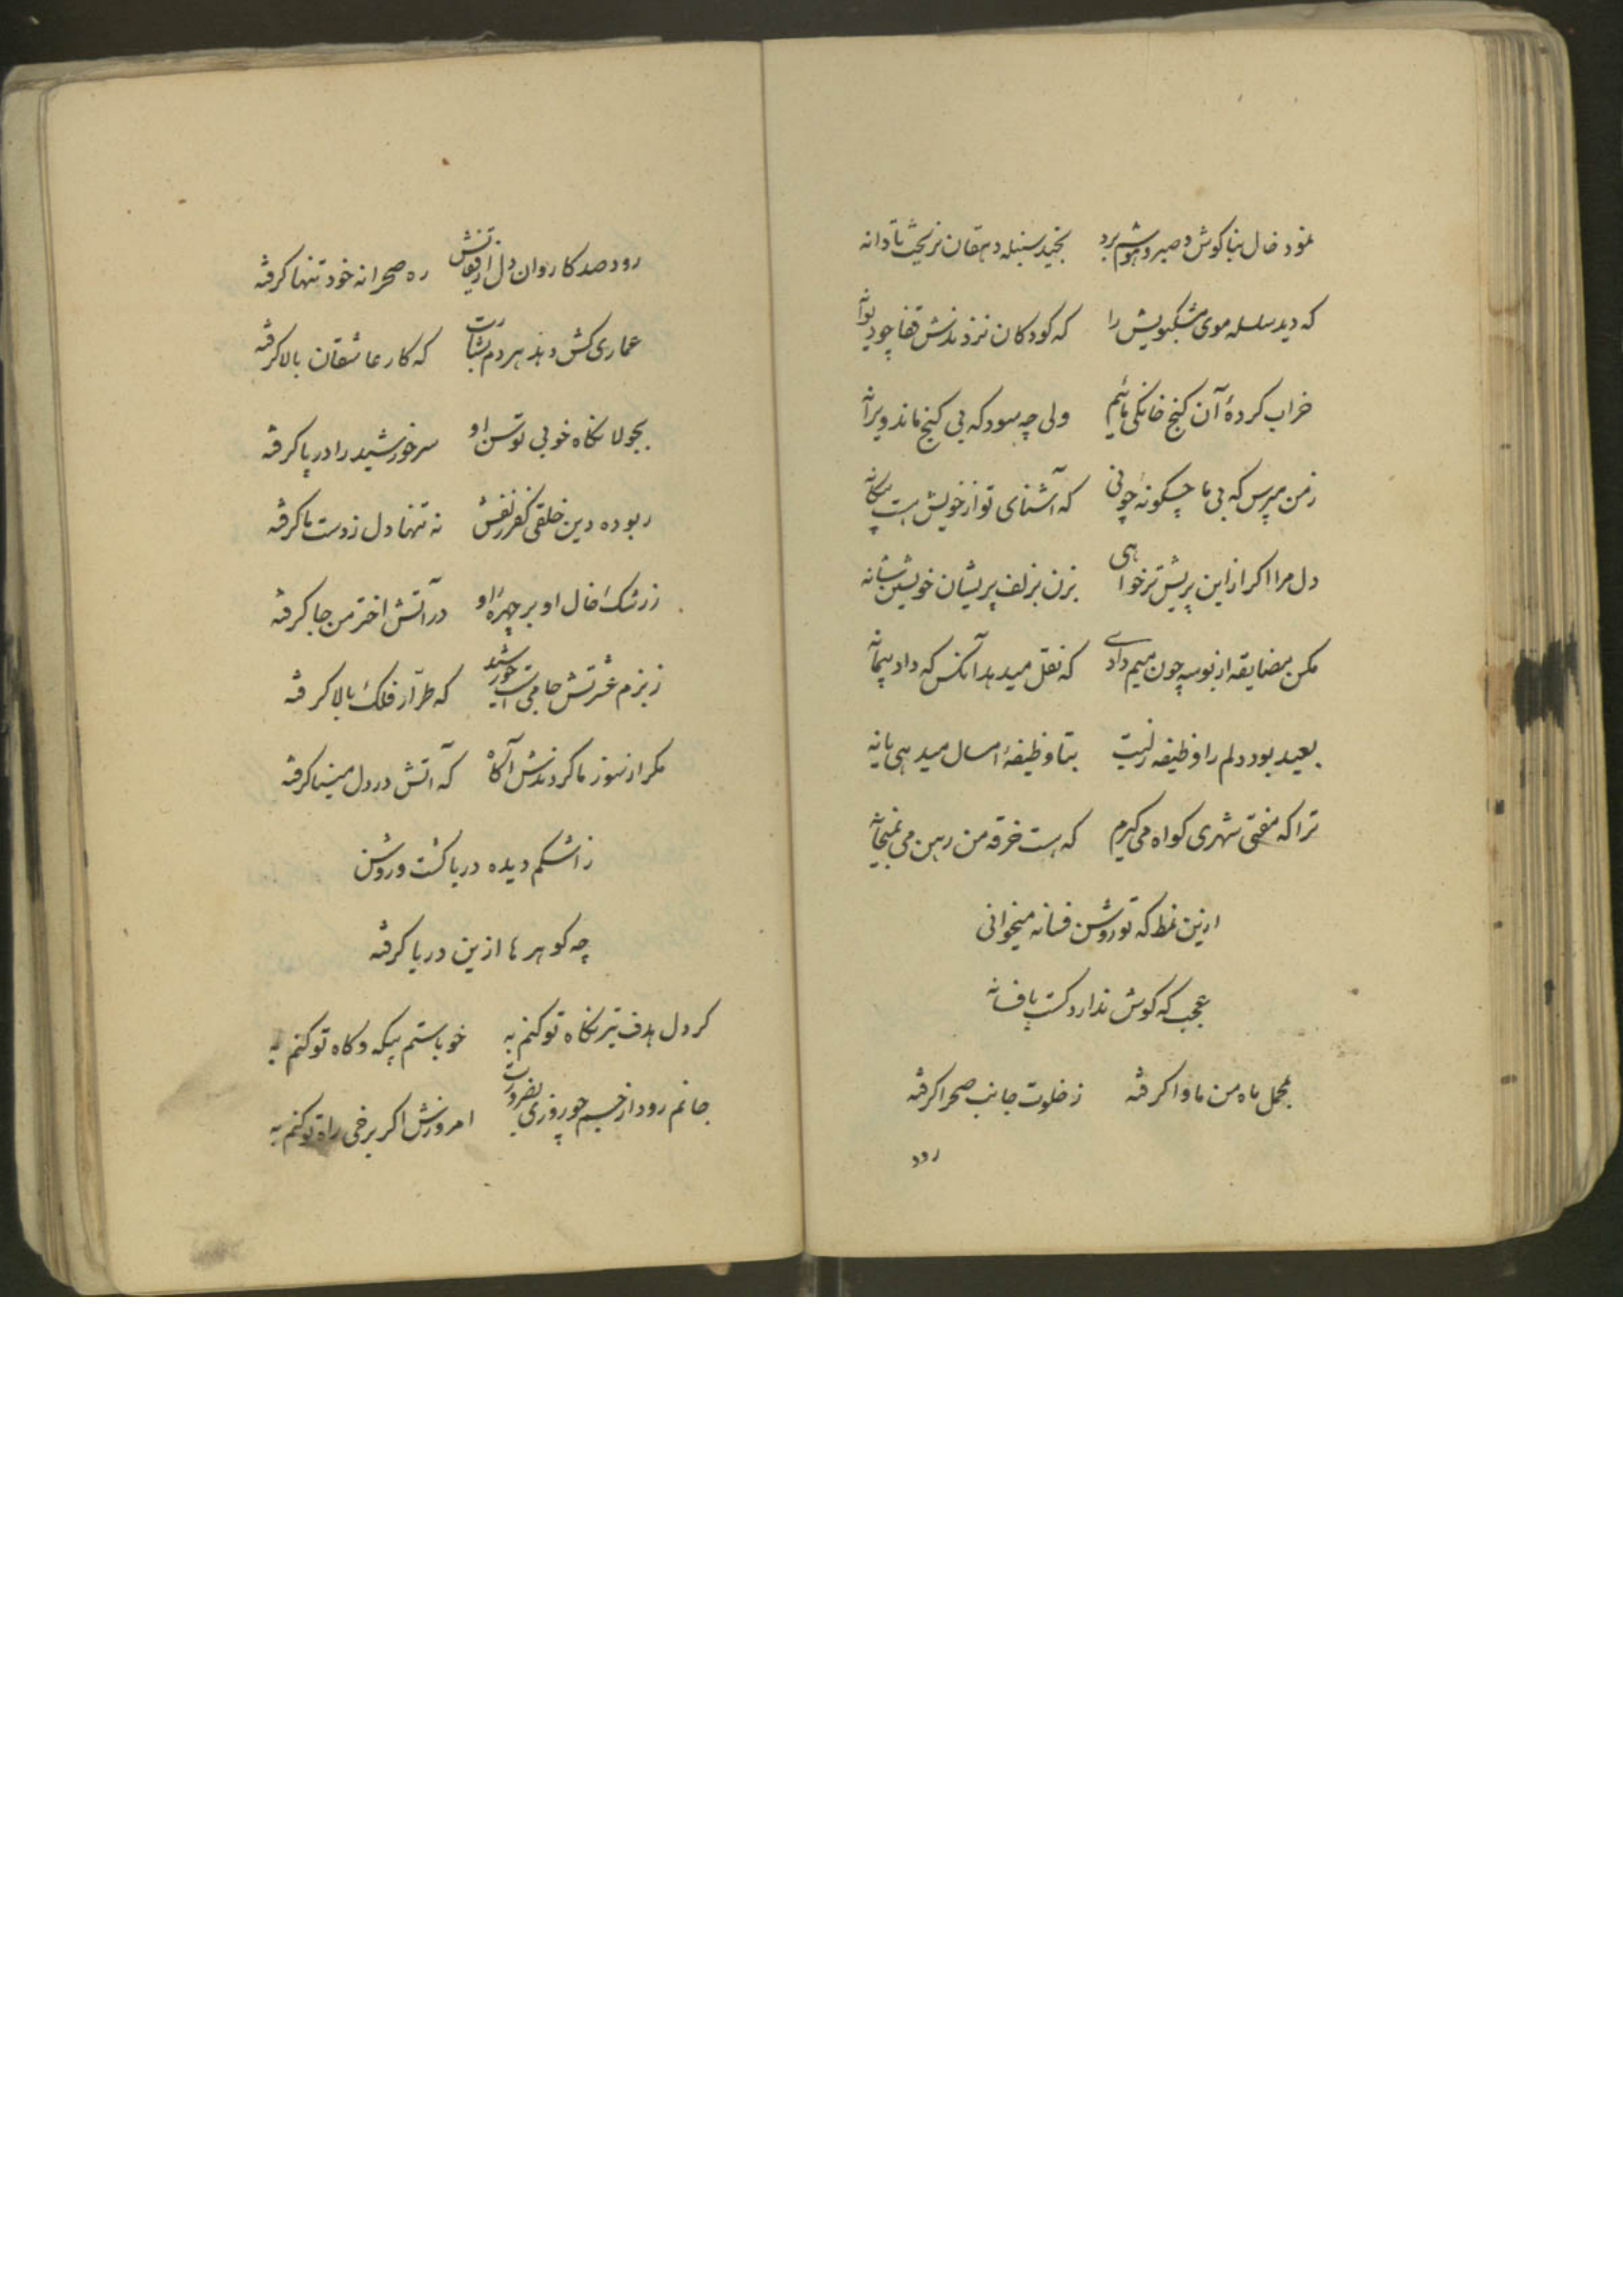 نمود خال بناکوش و صبر و هوشم برد بخید سنبله دهقان نریخت تا دانه
که دید سلسله موی مشکبویش را که کودکان نزدندش قفا چو دیوانه
خراب کردهٔ آن کنج خانکی مائیم ولی چه سود که بی کنج ماند ویرانه
زمن مپرس که بی ما چکونهٔ چونی که آشنای تو از خویش هست بیکانه
دل مرا اکر از این پریش تر خواهی بزن بزلف پریشان خویشتن شانه
مکن مضایقه از بوسه چون میم دادی که نقل میدهد آنکس که داد پیمانه
بعید بود دلم را وظیفه زلبت بتا وظیفهٔ امسال میدهی یا نه
ترا که مفتی شهری کواه می کیرم که هست خرقه من رهن می بمیخانه
ازین نمط که تو روشن فسانه میخوانی
عجب که کوش ندارد کست بافسانه
بمحمل ماه من ماوا کرفته ز خلوت جانب صحرا کرفته
رود
رود صد کاروان دل از قفایش ره صحرا نه خود تنها کرفته
عماری کش دهد هر دم بشارت که کار عاشقان بالا کرفته
بجولانکاه خوبی توسن او سر خورشید را در پا کرفته
ربوده دین خلقی کفر زلفش نه تنها دل ز دست ما کرفته
ز رشک خال او بر چهرهٔ او در آتش اختر من جا کرفته
ز بزم عشرتش جامی است خورشید که طرّار فلک بالا کرفته
مکر از سوز ما کردندش آکاه که آتش در دل مینا کرفته
ز اشکم دیده دریا کشت و روشن
چه کوهرها ازین دریا کرفته
کر دل هدف تیر نکاه تو کنم به خو با ستم بیکه و کاه تو کنم به
جانم رود از جسم چو روزی بضرورت امروزش اکر برخی راه تو کنم به